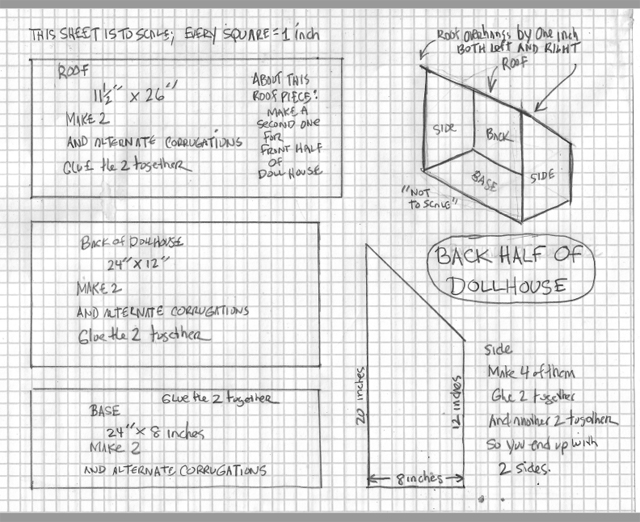 THIS SHEET IS TO SCALE; EVERY SQUARE = 1 inch
ROOF
11 1/2" X 26"
MAKE 2
AND ALTERNATE CORRUGATIONS
GLUE the 2 together
ABOUT THIS
ROOF PIECE:
MAKE A
SECOND ONE
FOR
FRONT HALF
OF
DOLLHOUSE
Roof overhangs by One inch
BOTH Left AND RIGHT
ROOF
SIDE
BACK
SIDE
BASE
"NOT
TO SCALE"
BACK HALF OF
DOLLHOUSE
BACK OF DOLLHOUSE
24" X 12"
MAKE 2
AND ALTERNATE CORRUGATIONS
Glue the 2 together
Glue the 2 together
BASE
24" X 8 inches
MAKE 2
AND ALTERNATE CORRUGATIONS
20 inches
12 inches
8 inches
Side
Make 4 of them
Glue 2 together
And another 2 together
So you end up with
2 sides.